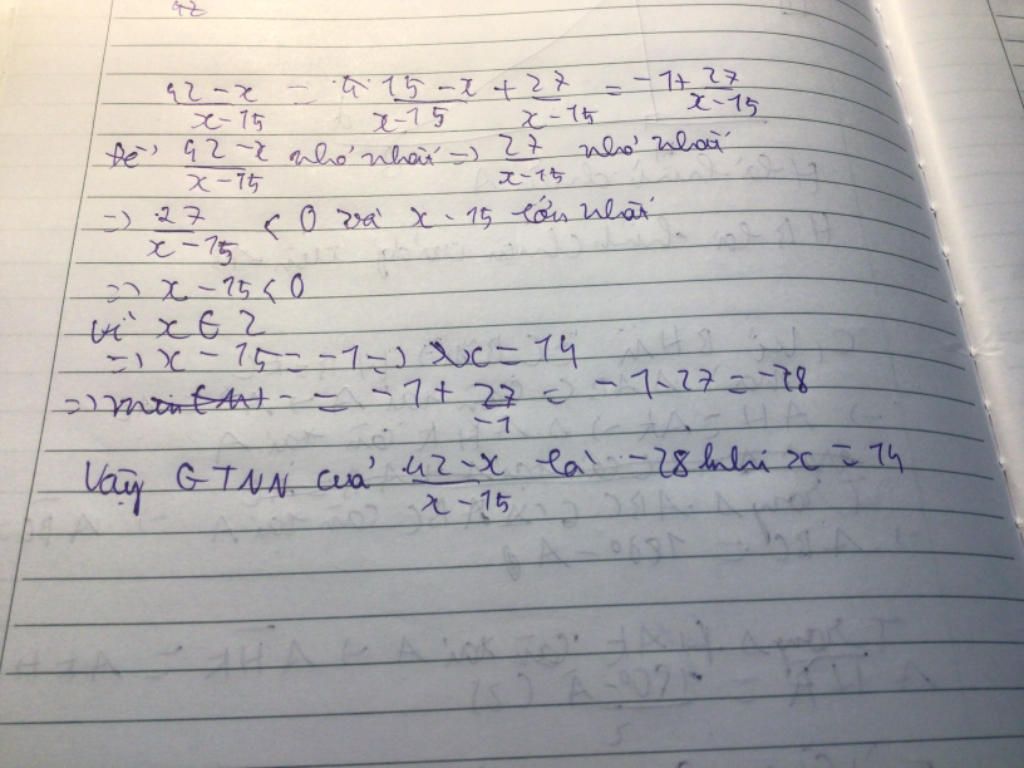 42
42-x/x-15 = 15-x/x-15 + 27/x-15 = -1+ 27/x-15
Để 42-x/x-15 nhỏ nhất => 27/x-15 nhỏ nhất
=> 27/x-15 < 0 và x-15 lớn nhất
=> x-15<0
Vì x∈Z
=> x-15=-1=> x=14
=> = -1+ 27/-1 = -1-27=-28
Vậy GTNN của 42-x/x-15 là -28 khi x=14